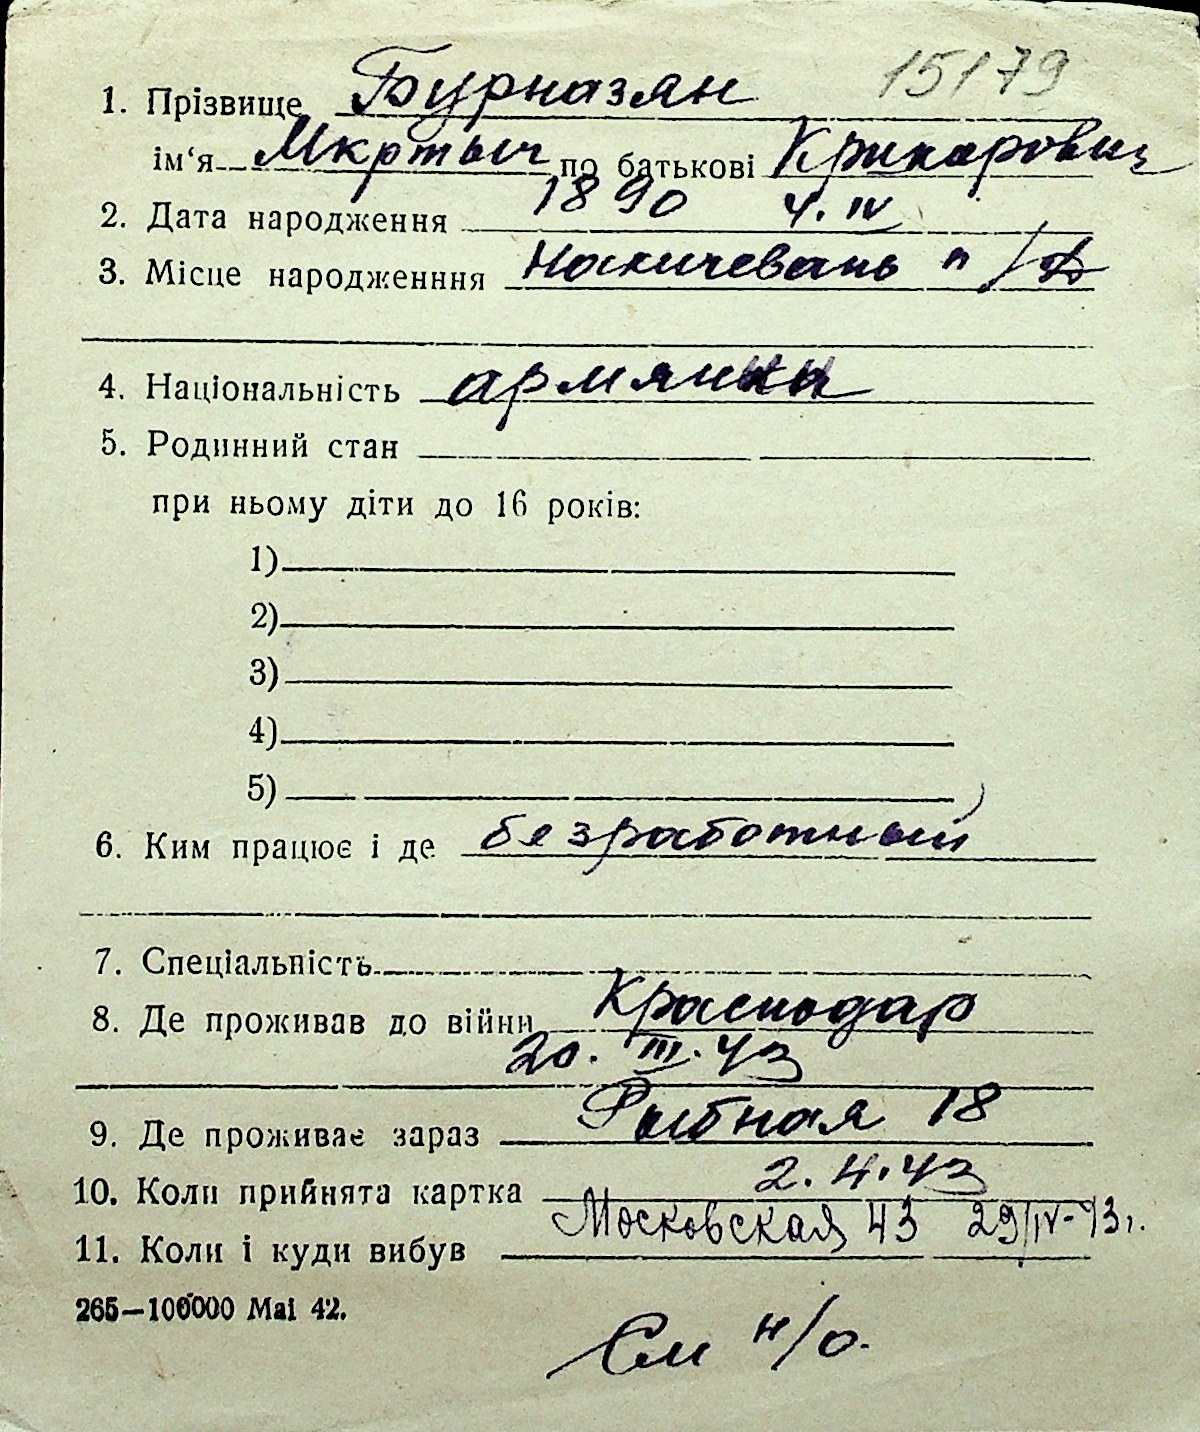 15179
1. Прізвище Бурназян
ім‘я Мкртыч по батькові Крикорович
2. Дата народження 1890 4. IV
3. Місце народженння Нахичевань н/Д
4. Національність армянин
5. Родинний стан
при ньому діти до 16 років:
1)
2)
3)
4)
5)
6. Ким працює і де безработный
7. Спеціальність
8. Де проживав до війни Краснодар
20. III. 43
9. Де проживає зараз Рыбная 18
10. Коли прийнята картка 2. 4. 43
Московская 43 29/IV-43г.
11. Коли і куди вибув
265—100000 Mai 42.
См н/о.